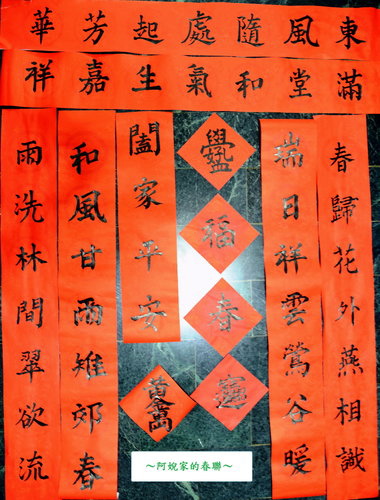 東風隨處起芳華
滿堂和氣生嘉祥
春歸花外燕相識
瑞日祥雲鶯谷暖
福
春
闔家平安
和風甘雨雉郊春
雨洗林間翠欲流
～阿婗家的春聯～